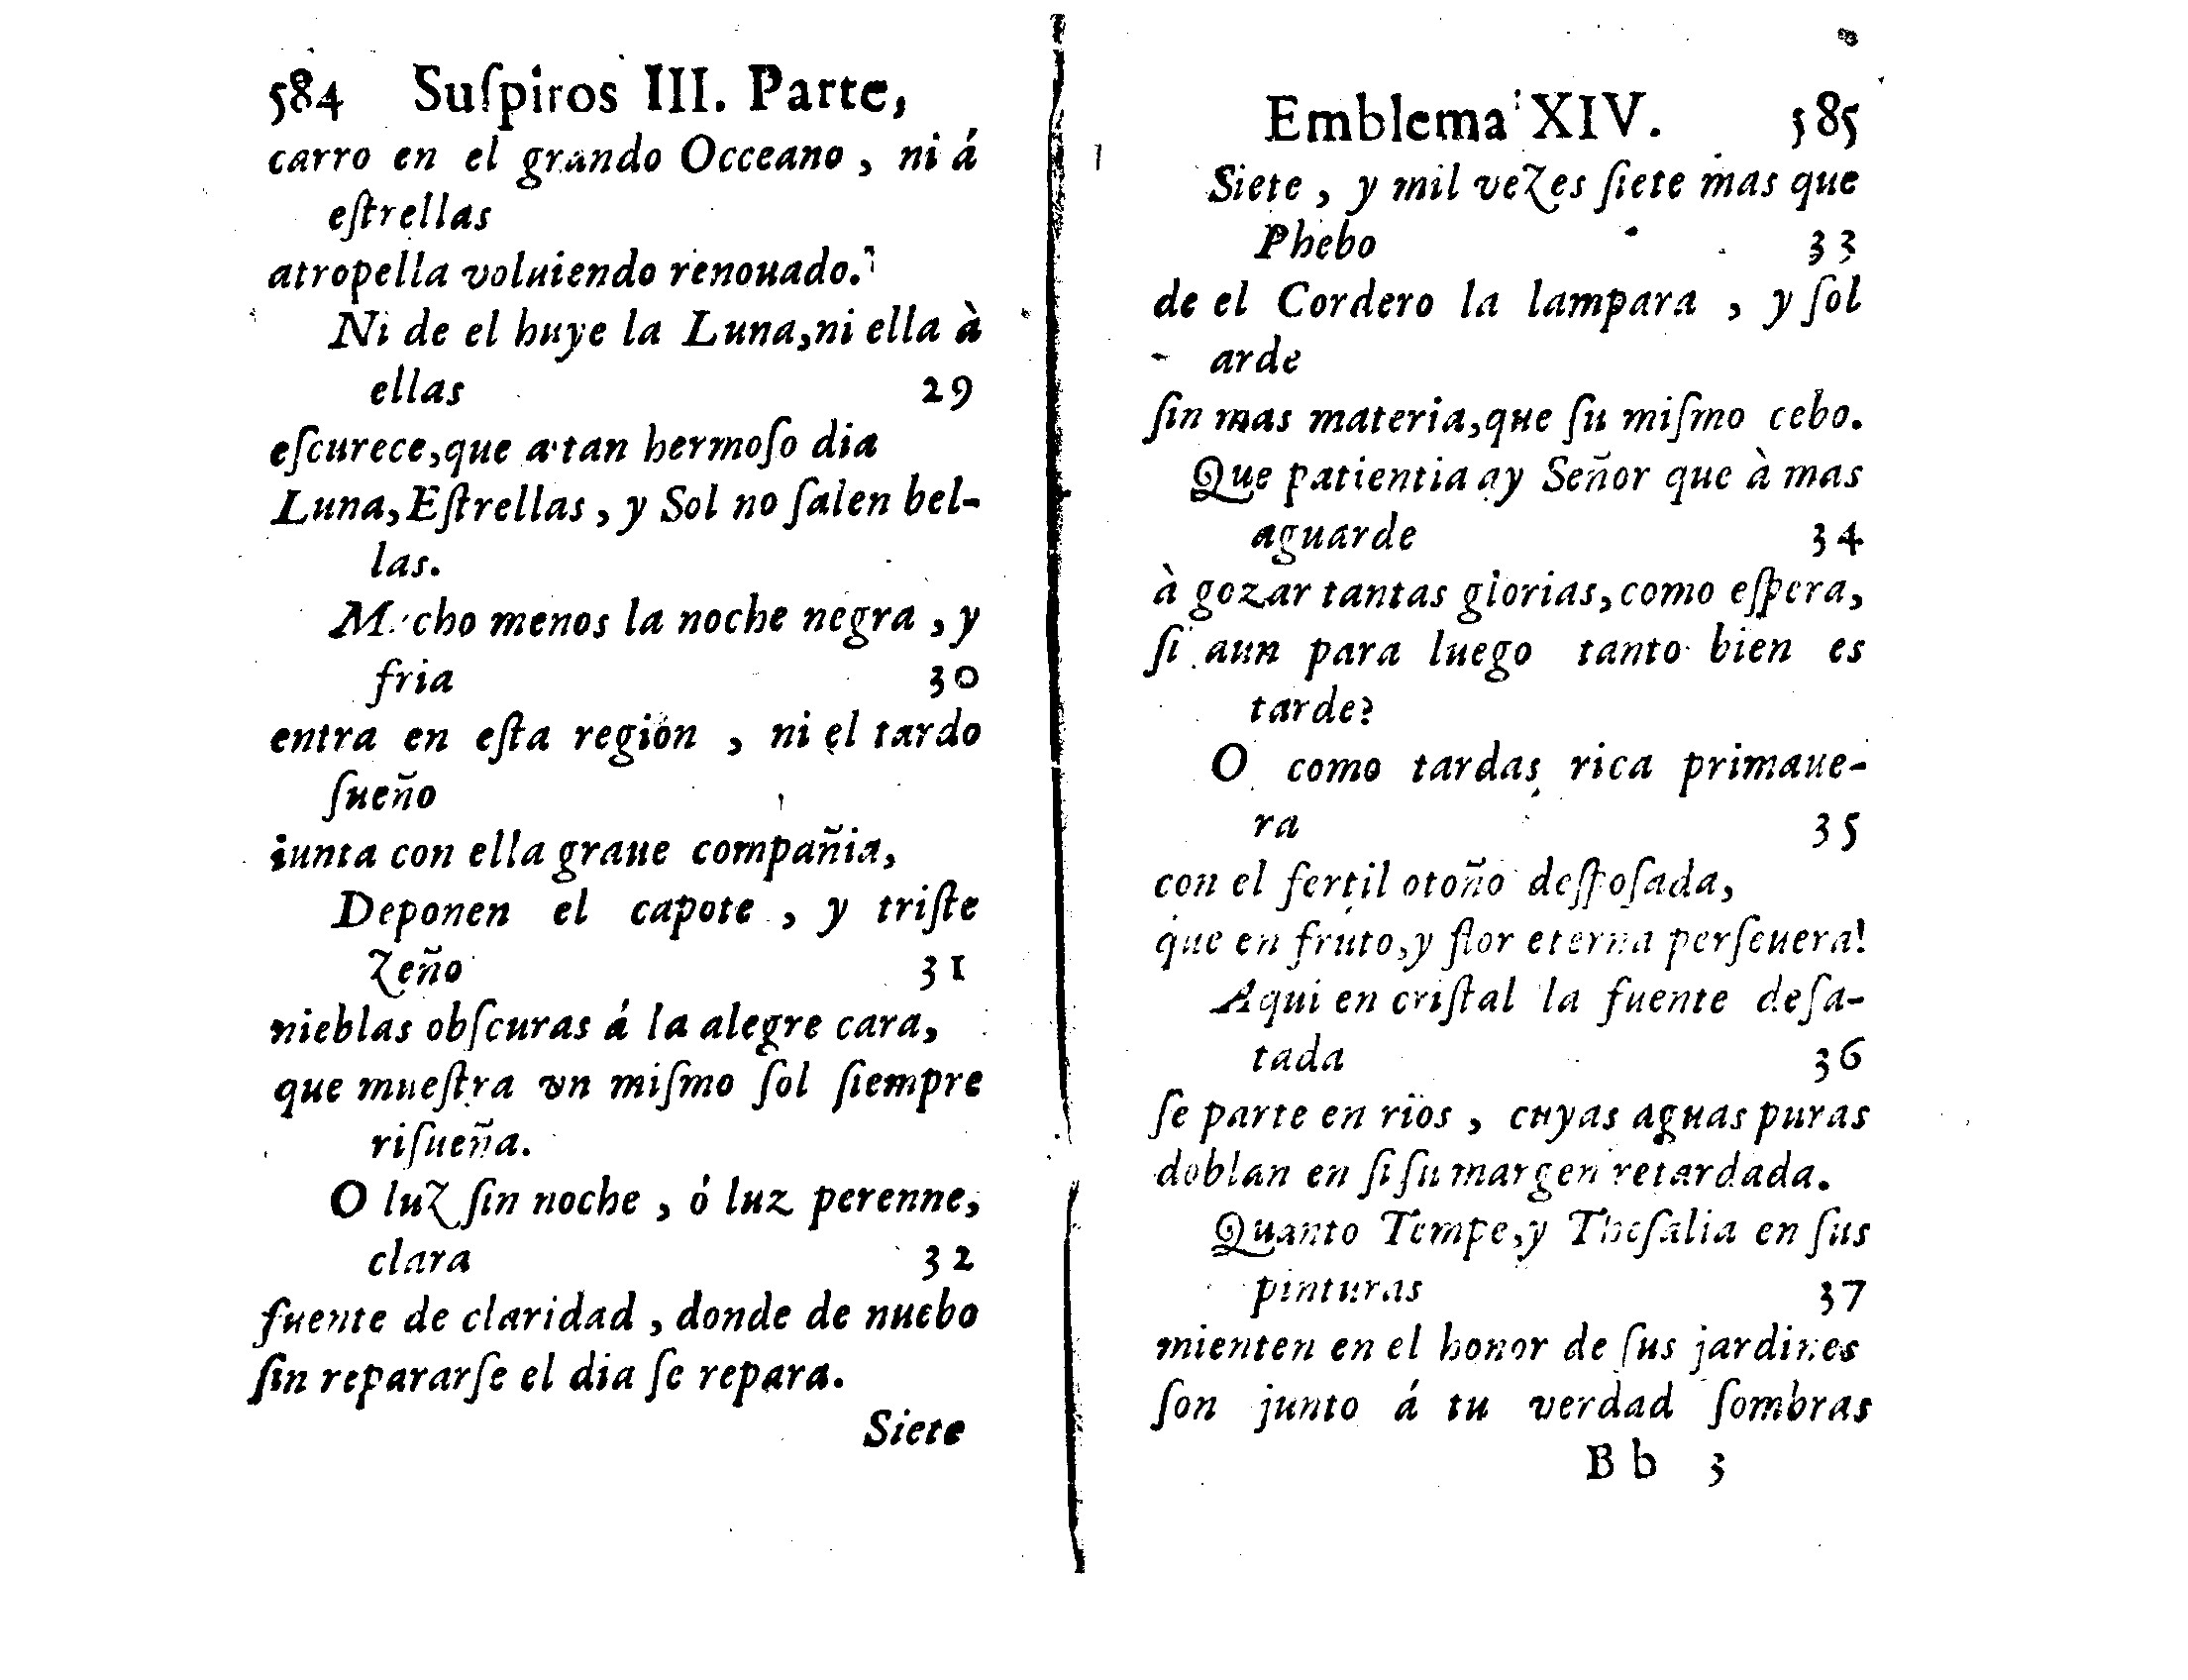 584 Suſpiros III. Parte,
carro en el grando Occeano, ni á
eſtrellas
atropella voluiendo renouado.
Ni de el huye la Luna, ni ella à
ellas 29
eſcurece, que a tan hermoſo dia
Luna, Eſtrellas, y Sol no ſalen bel-
las.
menos la noche negra, y
fria 30
entra en eſta región, ni el tardo
ſueño
iunta con ella graue compañia,
Deponen el capote, y triſte
Zeño 31
nieblas obſcuras á la alegre cara,
que mueſtra vn miſmo ſol ſiempre
riſueña.
O luZ ſin noche, ó luz perenne,
clara 32
fuente de claridad, donde de nuebo
ſin repararſe el dia ſe repara.
Siete
Emblema XIV. 585
Siete, y mil veZes ſiete mas que
Phebo 33
de el Cordero la lampara, y ſol
arde
ſin mas materia, que ſu miſmo cebo.
Que patientia ay Señor que à mas
aguarde 34
à gozar tantas glorias, como eſpera,
ſi aun para luego tanto bien es
tarde?
O como tardas rica primaue-
ra 35
con el fertil otoño deſpoſada,
que en fruto, y flor eterna perſeuera!
Aqui en criſtal la fuente deſa-
tada 36
ſe parte en rios, cuyas aguas puras
doblan en ſi ſu margen retardada.
Quanto Tempe, y Theſalia en ſus
pinturas 37
mienten en el honor de ſus jardines
ſon junto á tu verdad ſombras
Bb 3